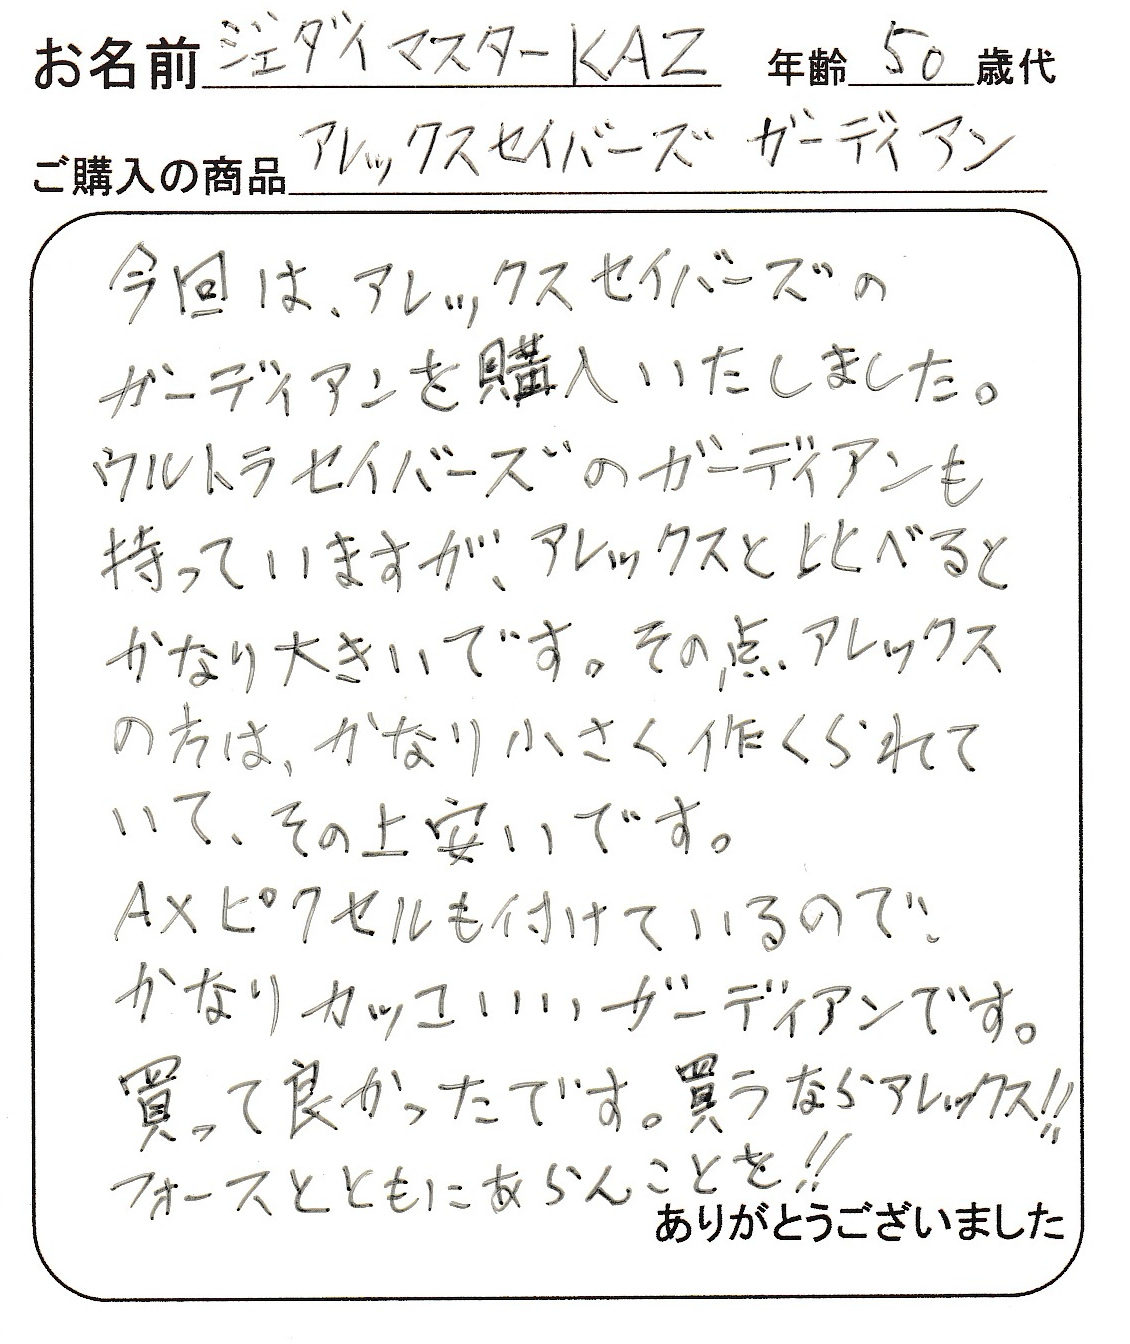 お名前 ジェダイマスターKAZ 年齢 50 歳代
ご購入の商品 アレックスセイバーズ ガーディアン
今回は、アレックスセイバーズの
ガーディアンを購入いたしました。
ウルトラセイバーズのガーディアンも
持っていますが、アレックスと比べると
かなり大きいです。その点、アレックス
の方は、かなり小さく作くられて
いて、その上安いです。
AXピクセルも付けているので、
かなりカッコいい、ガーディアンです。
買って良かったです。買うならアレックス!!
フォースとともにあらんことを!!
ありがとうございました